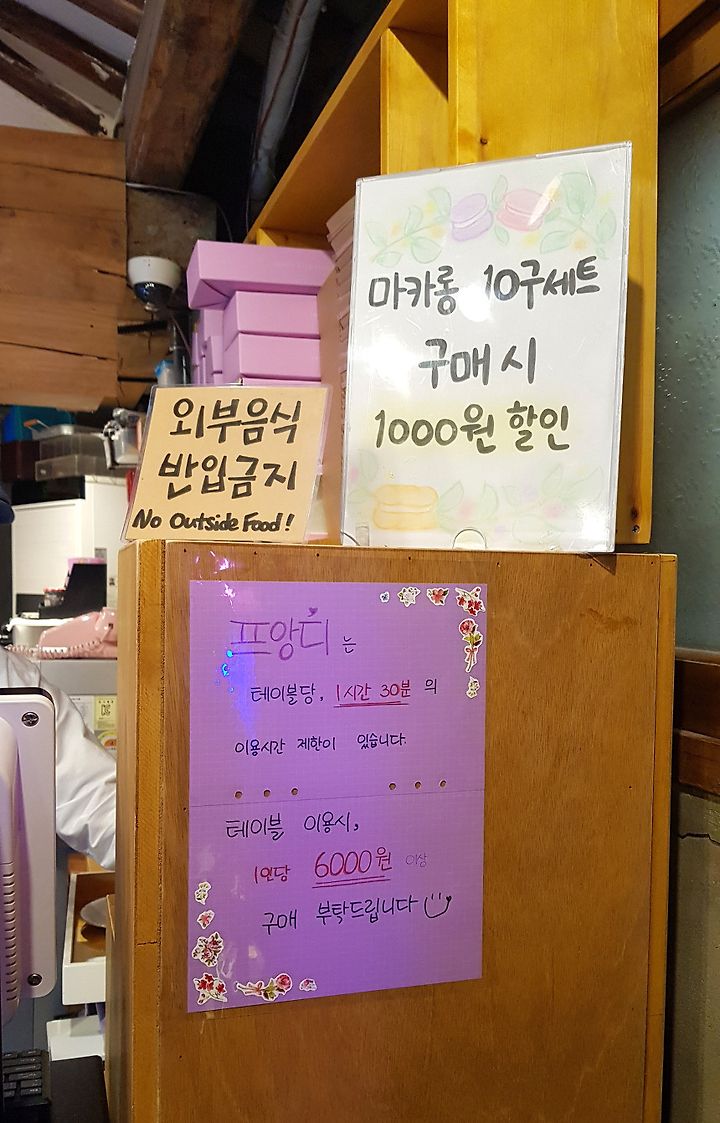 마카롱 10구세트
구매 시
1000원 할인
외부음식
반입금지
No Outside Food!
프앙디 는
테이블당, 1시간 30분 의
이용시간 제한이 있습니다.
테이블 이용시,
1인당 6000원 이상
구매 부탁드립니다